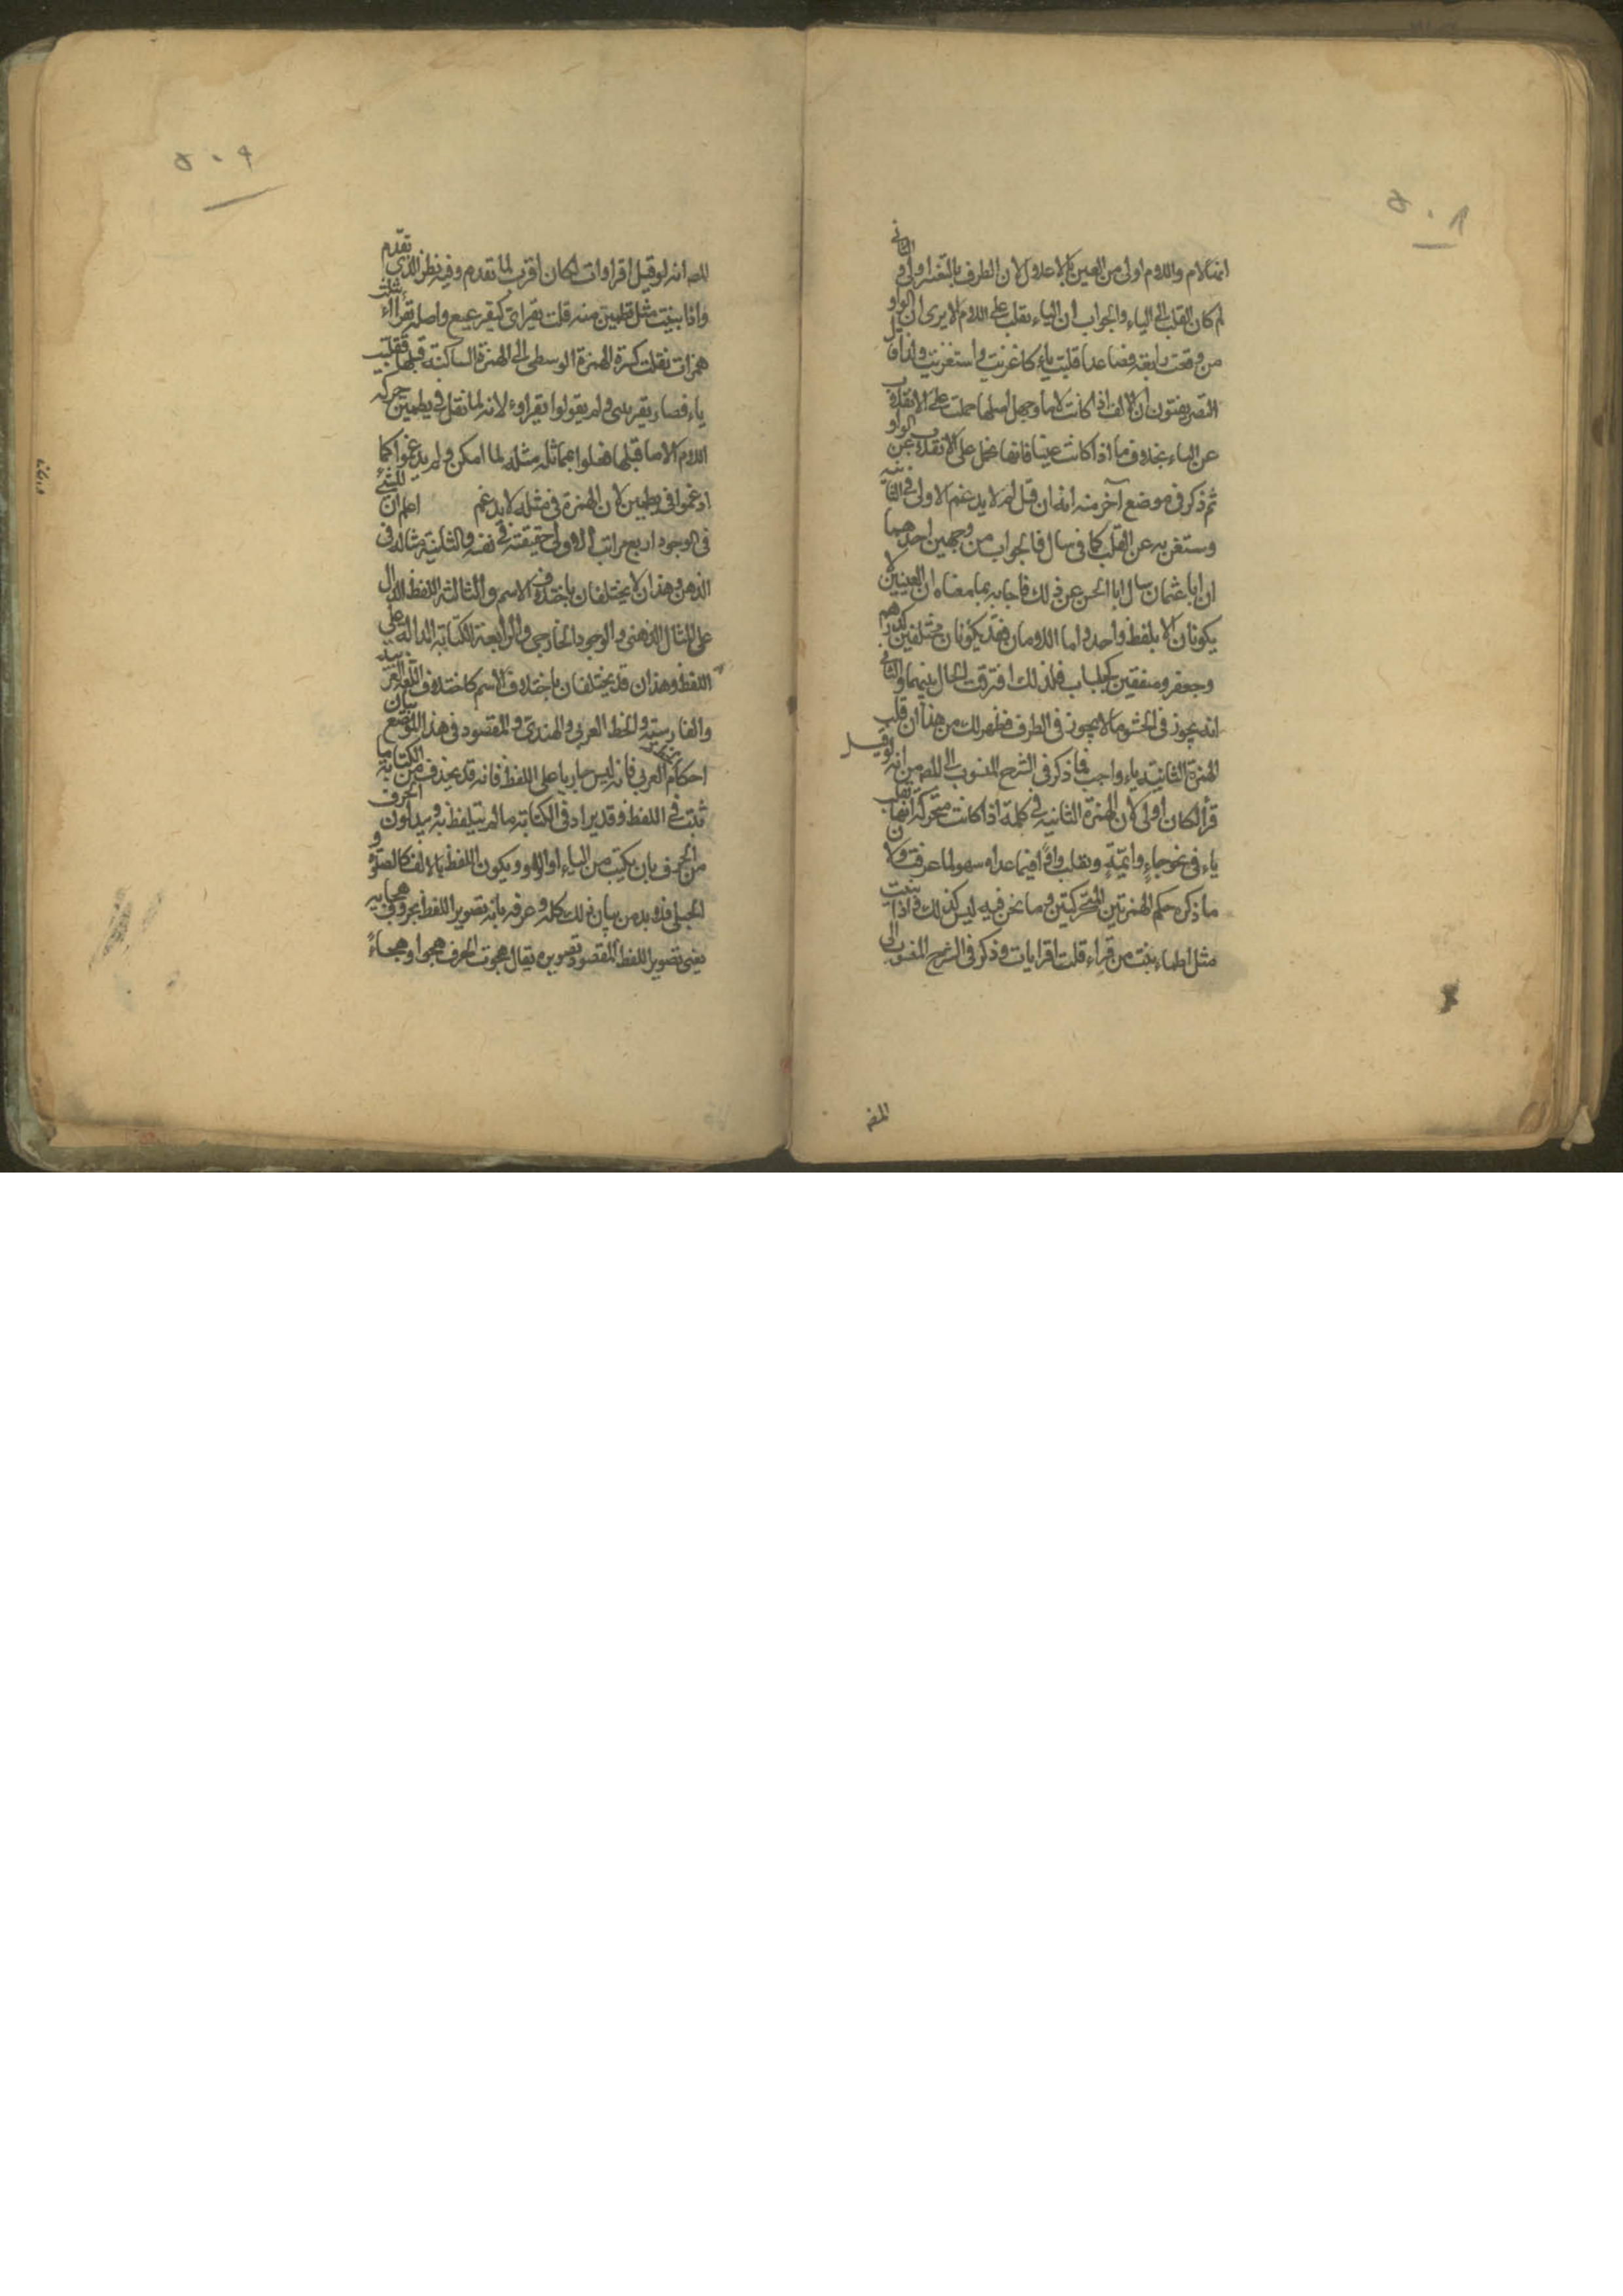 ٥٠٨
انها لام واللام اولى من العين بالاعلال لان الطرف بالتغير اولى والثاني
لم كان القلب الى الياء والجواب ان الياء تغلب على اللام الا يرى ان الواو
من وقعت رابعة فصاعدا قلبت ياء كاغزيت واستغزيت ولذا قال
التصريفيون ان الالف اذا كانت لاما وجهل اصلها حملت على الانقلاب
عن الياء بخلاف ما اذا كانت عينا فانها تحمل على الانقلاب عن الواو
ثم ذكر في موضع آخر منه انه ان قيل لم لا يدغم الاولى في الثانية
ويستغنى به عن القلب كما في سأل فالجواب من وجهين احدهما
ان ابا عثمان سأل ابا الحسن عن ذلك فاجابه بما معناه ان العينين لا
يكونان الا بلفظ واحد واما اللامان فقد يكونان مختلفين كدرهم
وجعفر ومتفقين كجلباب فلذلك افترقت الحال بينهما والثاني
انه يجوز في الحشو ما لا يجوز في الطرف فظهر لك من هذا ان قلب
الهمزة الثانية ياء واجب فما ذكر في الشرح المنسوب الى المصـ من انه لو قيل
قرأا لكان اولى لان الهمزة الثانية في كلمة اذا كانت متحركة انما تقلب
ياء في نحو جاء وايمة وتقلب واوا فيما عداه سهو لما عرفت ولان
ما ذكره حكم الهمزتين المتحركتين وما نحن فيه ليس كذلك واذا بنيت
مثل اطمأننت من قراء قلت اقرايات وذكر في الشرح المنسوب الى
المصـ
٥٠٩
المصـ انه لو قيل اقراوات لكان اقرب لما تقدم وفيه نظر للذي تقدم
واذا بنيت مثل يطمئن منه قلت يقرائ كيقرعيع واصله يقرأاء بثلث
همزات نقلت كسرة الهمزة الوسطى الى الهمزة الساكنة قبلها فقلبت
ياء فصار يقرئي ولم يقولوا يقراوء لانه لما نقل في يطمئن حركة
اللام الى ما قبلها فعلوا بمماثله مثله لما امكن ولم يدغموا كما
ادغموا في يطمئن لان الهمزة في مثله لا يدغم اعلم ان للشئ
في الوجود اربع مراتب الاولى حقيقته في نفسه والثانية مثاله في
الذهن وهذان لا يختلفان باختلاف الاسم والثالثة اللفظ الدال
على المثال الذهني والوجود الخارجي والرابعة الكتابة الدالة على
اللفظ وهذان قد يختلفان باختلاف الاسم كاختلاف اللغة العربية
والفارسية والخط العربي والهندي والمقصود في هذا الموضع بيان
احكام العربي فانه ليس جاريا على اللفظ فانه قد يحذف من الكتابة ما
ثبت في اللفظ وقد يزاد في الكتابة ما لم يتلفظ به ويبدلون الحرف
من الحرف بان يكتب من الياء او الواو ويكون اللفظ بالالف كالصلوة و
الحبلى فلا بد من بيان ذلك كله وعرفه بانه تصوير اللفظ بحروف هجايه
يعني تصوير اللفظ المقصود تصويره يقال هجوت الحرف هجوا وهجاءً